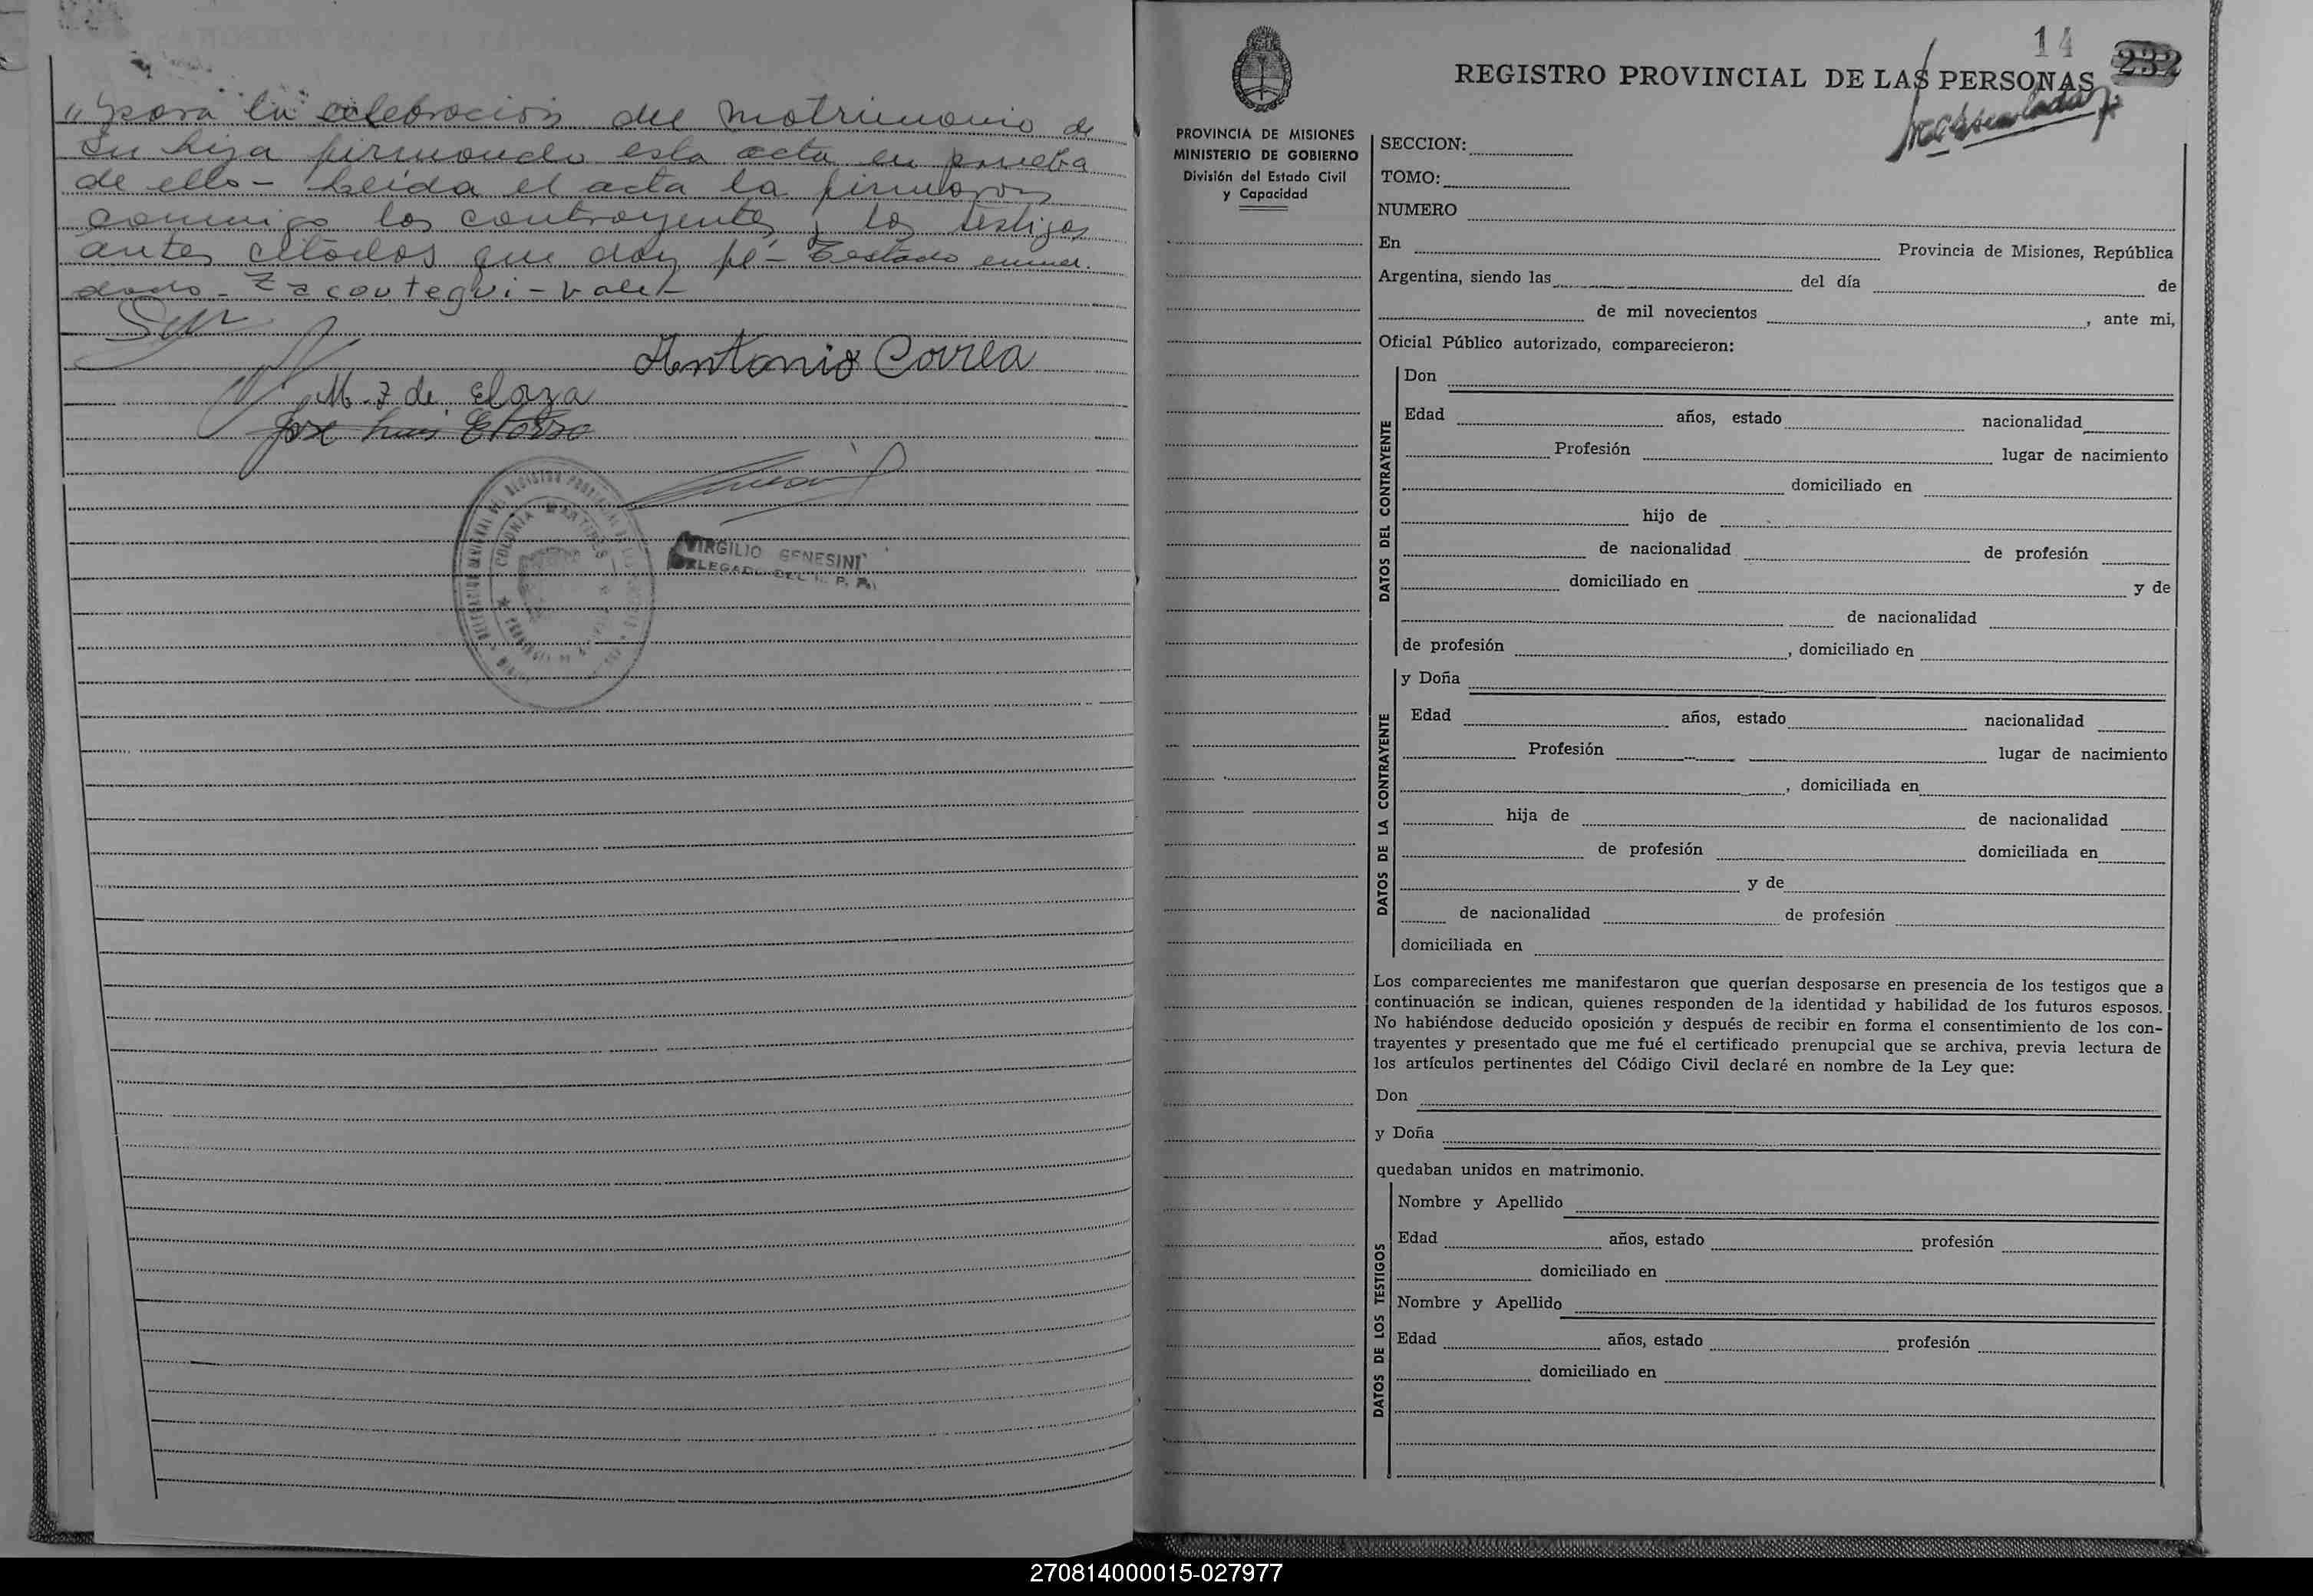 "para la celebración del matrimonio de
su hija firmando esta acta en prueba
de ello - Leida el acta la firmaron
conmigo los contrayentes y los testigos
antes citados que doy fé - Testado enmen-
dado - Zacoutegui - Vale -
Antonio Correa
M. Z de Elaza
Jose Luis
COLONIA MARTIRES
VIRGILIO GENESINI
DELEGADO DEL R. P. P.
14
232
REGISTRO PROVINCIAL DE LAS PERSONAS
PROVINCIA DE MISIONES
MINISTERIO DE GOBIERNO
División del Estado Civil
y Capacidad
SECCION:
TOMO:
NUMERO
En Provincia de Misiones, República
Argentina, siendo las del día de
de mil novecientos , ante mi,
Oficial Público autorizado, comparecieron:
DATOS DEL CONTRAYENTE
Don
Edad años, estado nacionalidad
Profesión lugar de nacimiento
domiciliado en
hijo de
de nacionalidad de profesión
domiciliado en y de
de nacionalidad
de profesión , domiciliado en
DATOS DE LA CONTRAYENTE
y Doña
Edad años, estado nacionalidad
Profesión lugar de nacimiento
, domiciliada en
hija de de nacionalidad
de profesión domiciliada en
y de
de nacionalidad de profesión
domiciliada en
Los comparecientes me manifestaron que querían desposarse en presencia de los testigos que a
continuación se indican, quienes responden de la identidad y habilidad de los futuros esposos.
No habiéndose deducido oposición y después de recibir en forma el consentimiento de los con-
trayentes y presentado que me fué el certificado prenupcial que se archiva, previa lectura de
los artículos pertinentes del Código Civil declaré en nombre de la Ley que:
Don
y Doña
quedaban unidos en matrimonio.
DATOS DE LOS TESTIGOS
Nombre y Apellido
Edad años, estado profesión
domiciliado en
Nombre y Apellido
Edad años, estado profesión
domiciliado en
270814000015-027977